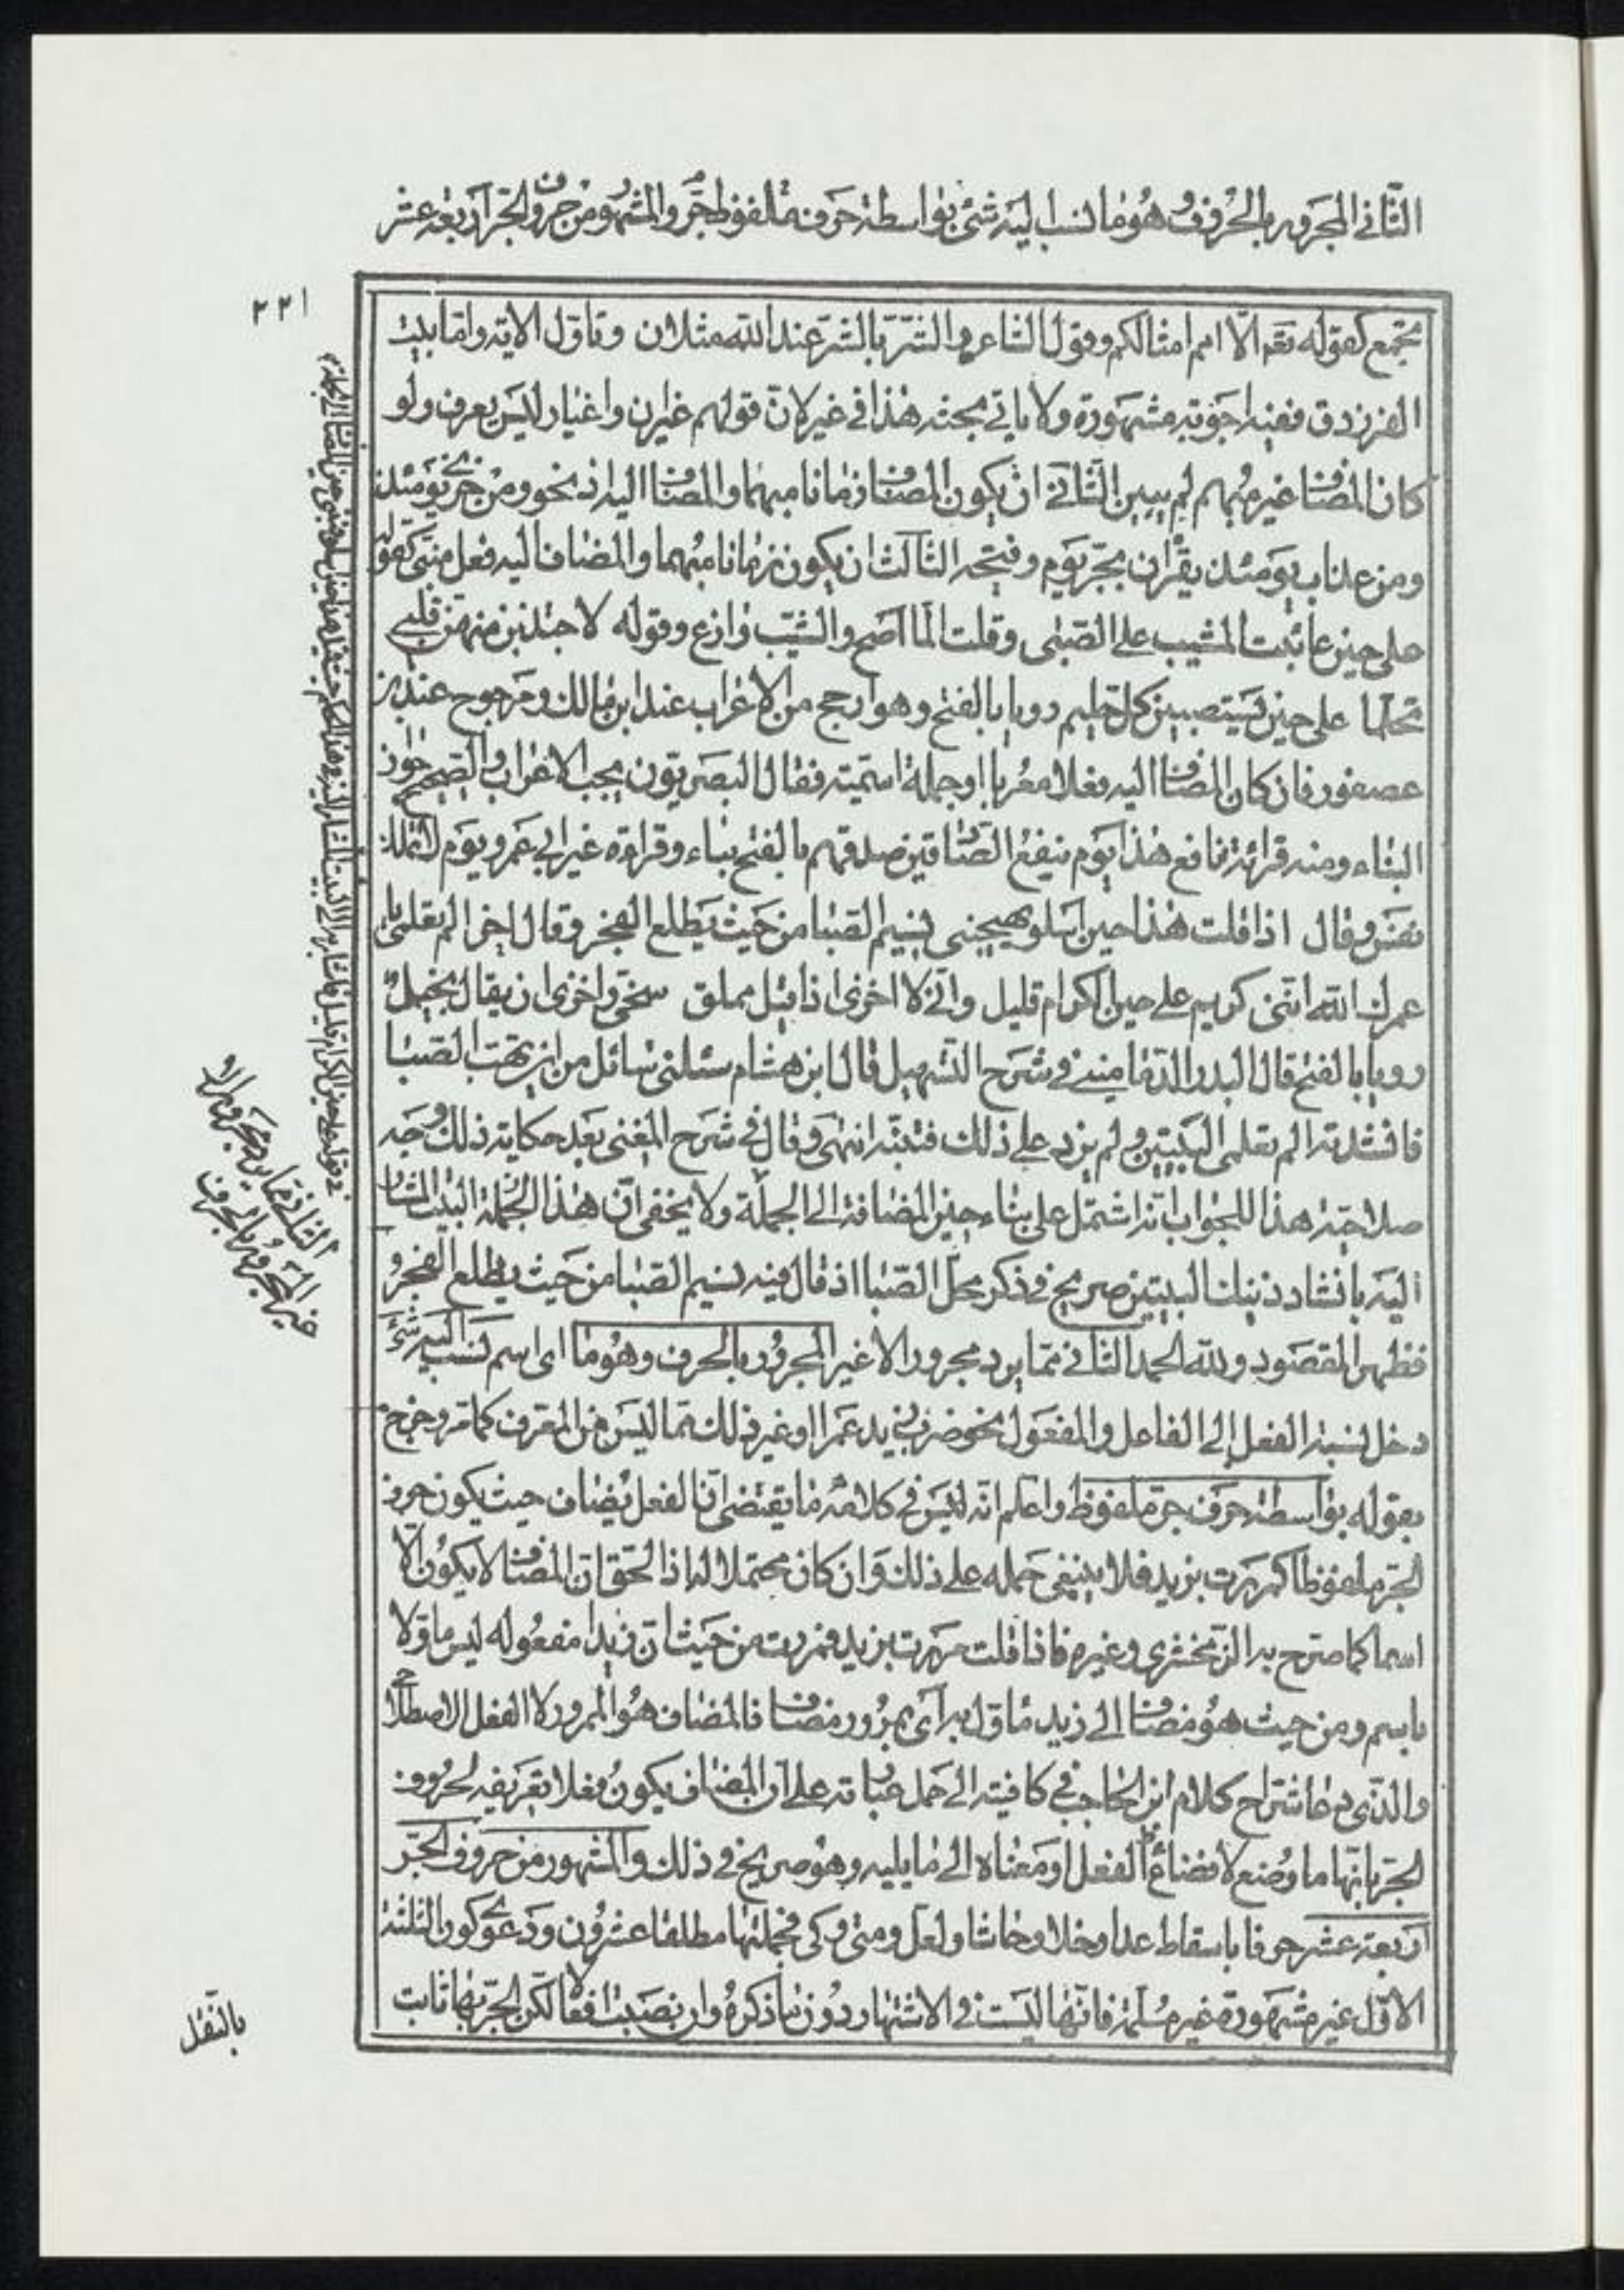 الثّاني المجرور بالحروف وهو ما نسب اليه شئ بواسطة حرف ملفوظ جرّ والمشهور من حروف الجرّ اربعة عشر
٢٢١
تجمع كقوله تعم الّا امم امثالكم وقول الشاعر والشّرّ بالشّرّ عند الله مثلان وتاوّل الاية وامّا بيت
الفرزدق ففيه اجوبة مشهورة ولا ياتي بحثه هذا في غير لانّ قولهم غيرن واغيار ليس بعرف ولو
كان المضاف غير مبهم لم يبن الثّاني ان يكون المضاف زمانا مبهما والمضاف اليه اذ نحو ومن خزى يومئذ
ومن عذاب يومئذ يقران بجرّ يوم وفتحه الثالث ان يكون زمانا مبهما والمضاف اليه فعل مبنى كقوله
على حين عاتبت المشيب على الصّبى وقلت الما اصح والشّيب وازع وقوله لاجتذبن منهن قلبي
تحلما على حين يستصبين كل حليم رويا بالفتح وهو ارجح من الاعراب عند ابن مالك ومرجوح عند ابن
عصفور فان كان المضاف اليه فعلا معربا او جملة اسميّة فقال البصريّون يجب الاعراب والصحيح جواز
البناء ومنه قرائة نافع هذا يوم ينفع الصّادقين صدقهم بالفتح بناء وقراءة غير ابي عمرو يوم لا تملك
نفس وقال اذا قلت هذا حين اسلو يهيجني نسيم الصّبا من حيث يطلع الفجر وقال اخر الم تعلمي يا
عمرك الله انّني كريم على حين الكرام قليل وانّي لا اخزى اذا قيل مملق سخيّ واخزى ان يقال بخيل
رويا بالفتح قال البدر الدّماميني في شرح التّسهيل قال ابن هشام سئلني سائل من اين تهبّ الصّبا
فانشدته الم تعلمي البيتين ولم يزد على ذلك فتنبّه انتهى وقال في شرح المغنى بعد حكاية ذلك وجه
صلاحيّة هذا للجواب انّه اشتمل على بناء حين المضافة الى الجملة ولا يخفى انّ هذا الجملة البيت المشار
اليه بانشاد ذينك البيتين صريح في ذكر محلّ الصّبا اذ قال فيه نسيم الصّبا من حيث يطلع الفجر و
فظهر المقصود ولله الحمد الثاني ممّا يرد مجرورا لا غير المجرور بالحرف وهو ما اى اسم نسب اليه شئ
دخل نسبة الفعل إلى الفاعل والمفعول نحو ضرب زيد عمرا او غير ذلك ممّا ليس من المعرف كما مر وخرج
بقوله بواسطة حرف جرّ ملفوظ واعلم انّه ليس في كلامه ما يقتضى انّ الفعل يضاف حيث يكون حرف
الجرّ ملفوظا كمررت بزيد فلا ينبغى حمله على ذلك وان كان محتملا له اذ الحقّ انّ المضاف لا يكون الّا
اسما كما صرّح به الزّمخشري وغيره فاذا قلت مررت بزيد فمررت من حيث انّ زيدا مفعوله ليس ماوّلا
باسم ومن حيث هو مضاف الى زيد ماوّل به اى بمرور مضاف فالمضاف هو المرور لا الفعل الاصطلاحي
والّذي دعا شرّاح كلام ابن الحاجب في كافيته الى حمل عبارته على انّ المضاف يكون فعلا تعريفه لحروف
الجرّ بانّها ما وضع لافضاء الفعل او معناه الى ما يليه وهو صريح في ذلك والمشهور من حروف الجّر
اربعة عشر حرفا باسقاط عدا وخلا وحاشا ولعل ومتى وكى فجملتها مطلقا عشرون ودعوى كون الثلثة
الاوّل غير مشهورة غير مسلّمة فانّها ليست في الاشتهار دون ما ذكره وان نصبت افعالا لكن الجرّ بها ثابت
الثاني ممّا يرد مجرورا لا
غير المجرور بالحرف
بالنّقل